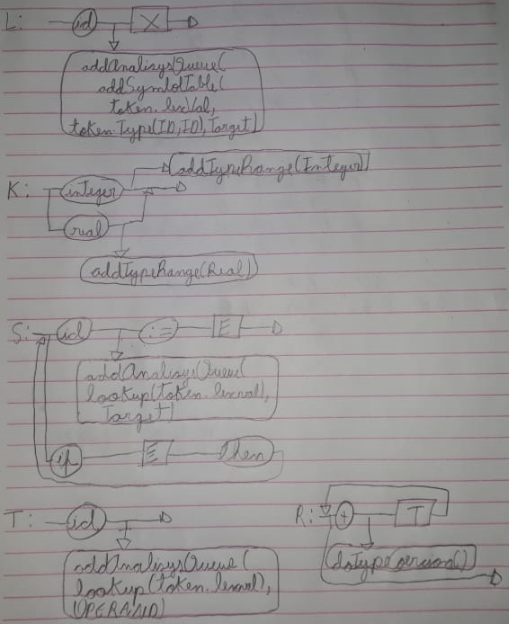 L: id X
addAnalisysQueue(
addSymbolTable(
token.lexVal,
token.Type(ID,ID),Target)
addTypeRange(Integer)
K: integer
real
addTypeRange(Real)
S: id := E
addAnalisysQueue(
lookup(token.lexval),
Target)
if E Then
T: id
R: + T
addAnalisysQueue(
lookup(token.lexval),
OPERAND)
doTypeCoercion()